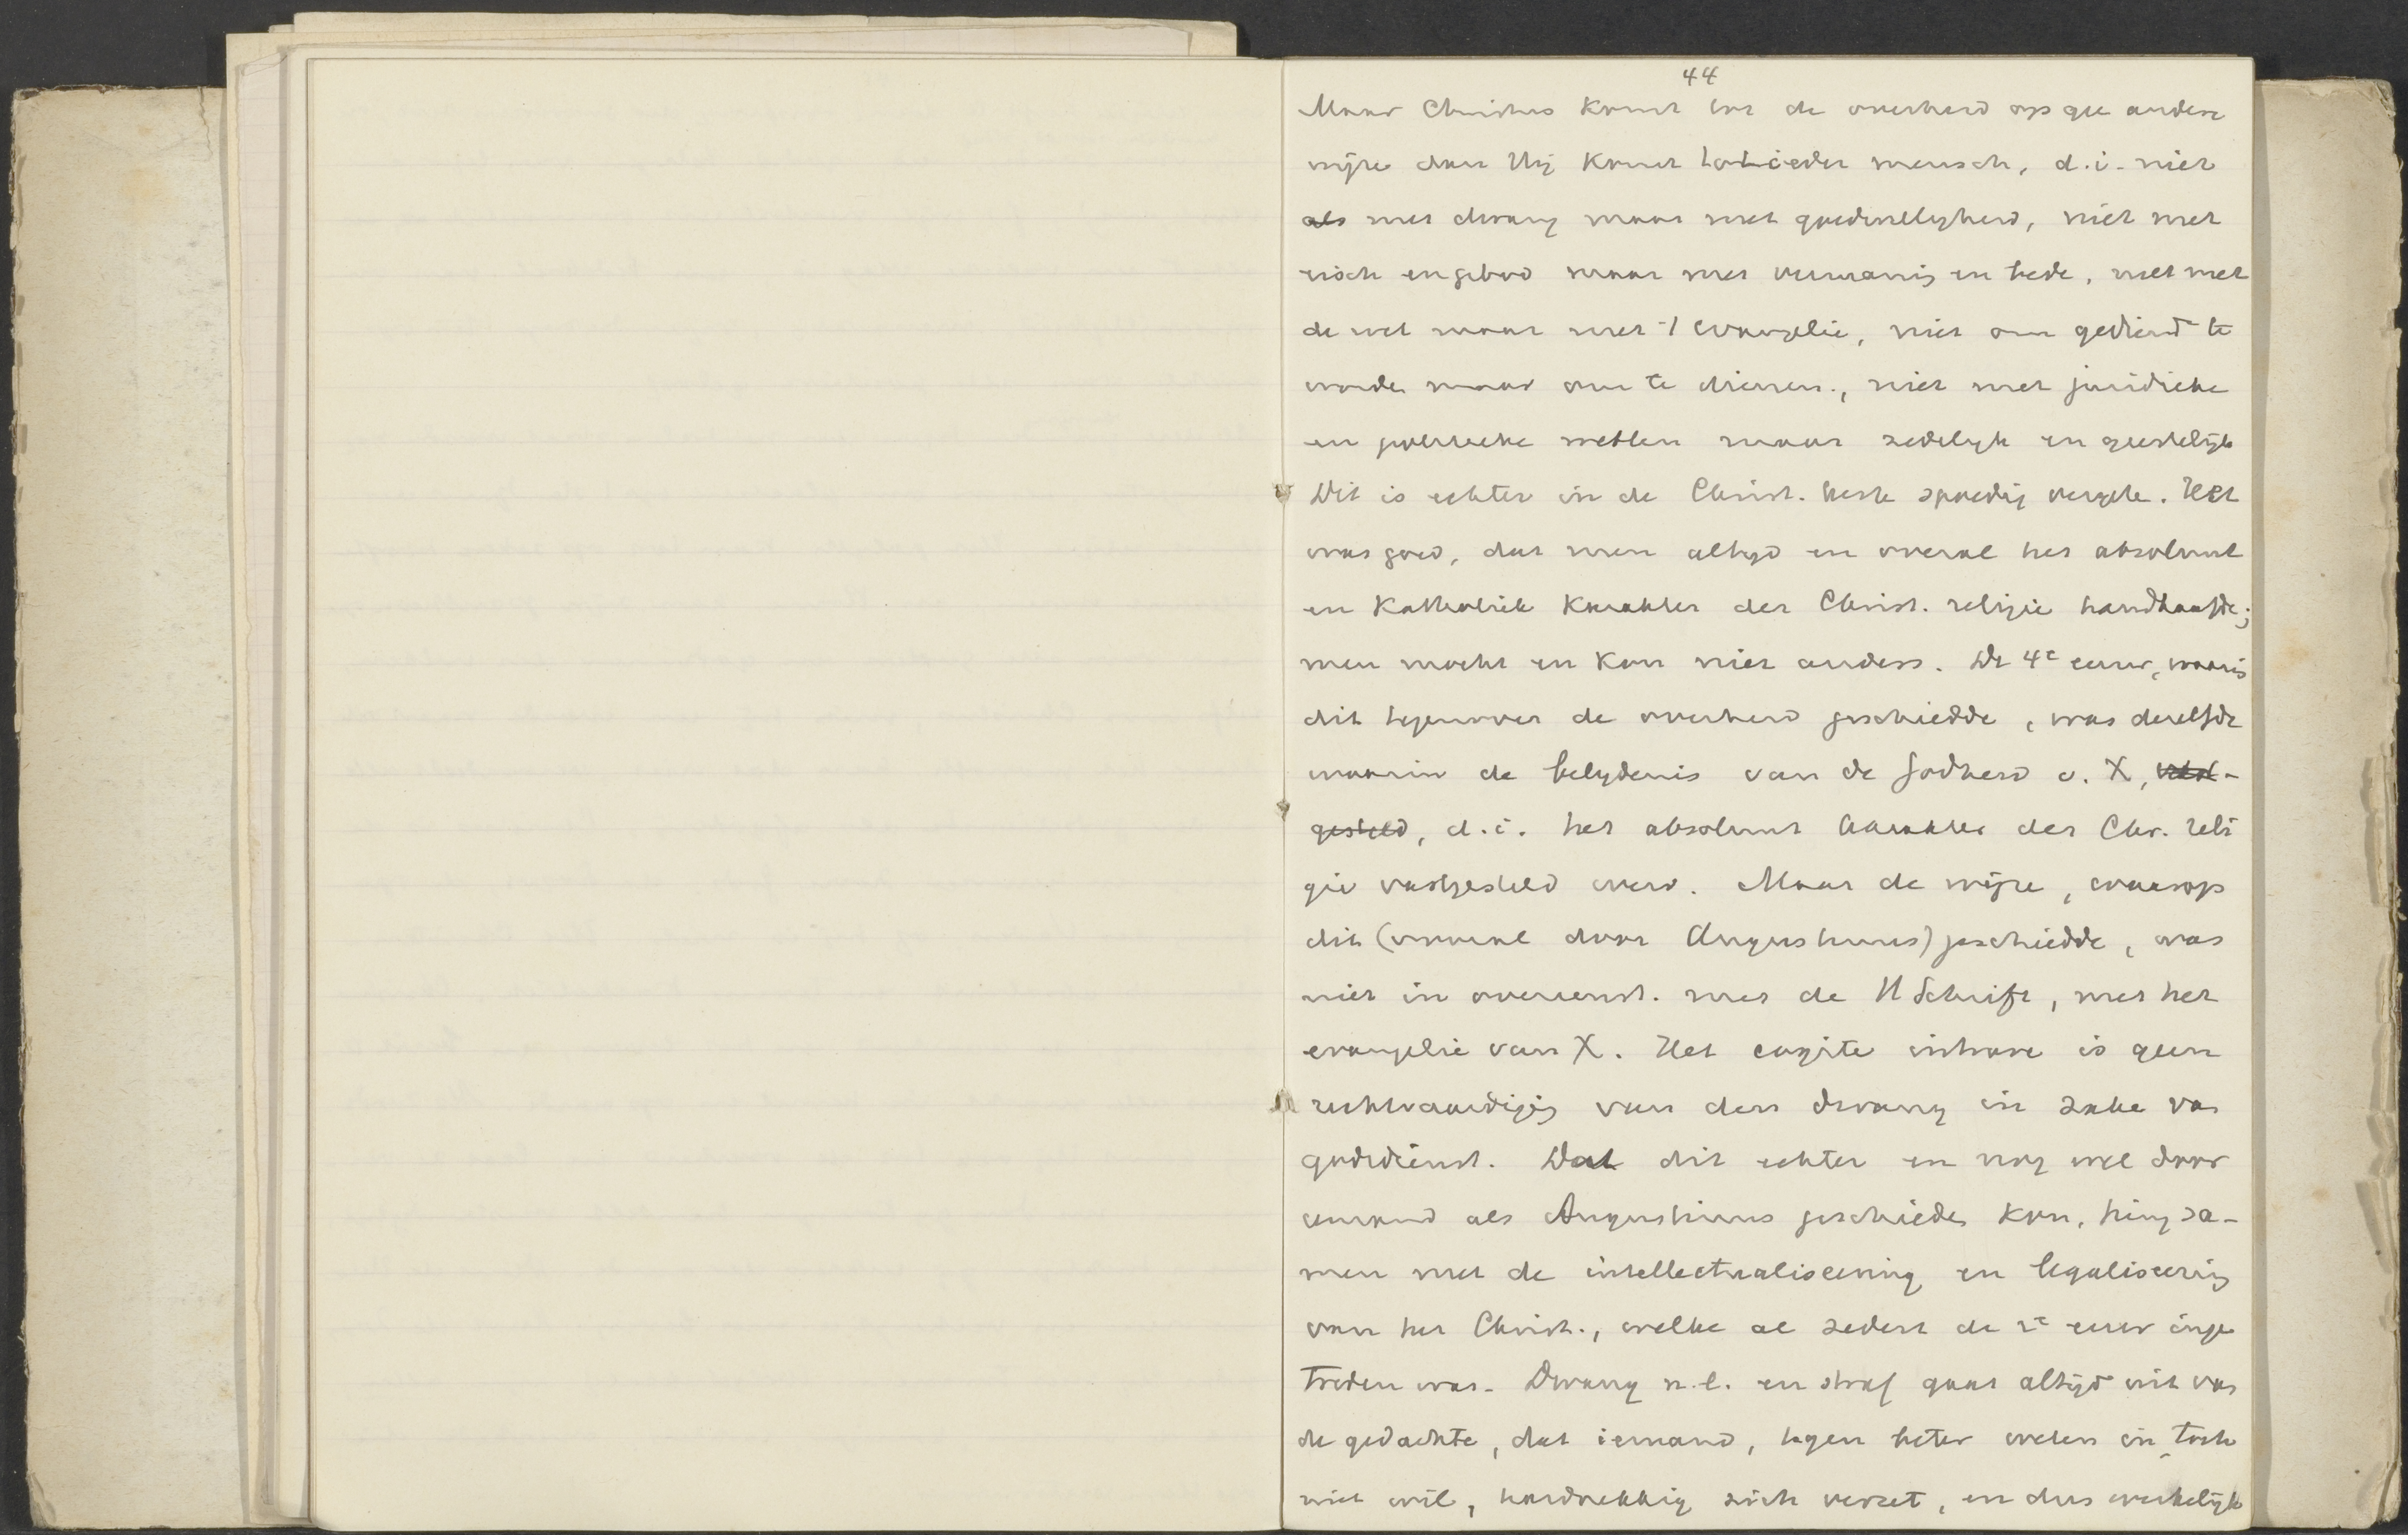 44
Maar Christus komt tot de overheid op gee andere
wijze dan Hij komt tot ieder mensch, d.i. niet
als met dwang maar met goedwilligheid, niet met
eisch en gebod maar met vermanig en bede, niet met
de wet maar met 't evangelie, niet om gediend te
worde maar om te dienen, niet met juridieke
en politieke wetten maar zedelijk en geestelijk
Dit is echter in de Christ. kerk spoedig vergete. Het
was goed, dat men altijd en overal het absoluut
en Katholiek Karakter der Christ. religie handhaafde;
men mocht en kon niet anders. De 4e eeuw, waari
dit tegenover de overheid geschiedde, was dezelfde
waarin de belydenis van de Godheid v. X, vast-
gesteld, d.i. het absoluut karakter der Chr. reli
gie vastgesteld werd. Maar de wijze, waarop
dit (vooral door Augustinus) geschiedde, was
niet in overeenst. met de H Schrift, met het
evangelie van X. Het cogite intrare is geen
rechtvaardigig van den dwang in zake va
godsdienst. Dat dit echter en nog wel door
iemand als Augustinus geschiede kon, hing sa-
men met de intellectualiseering en legaliseerig
van het Christ., welke al sedert de 2e eeuw inge
treden was. Dwang n.l. en straf gaat altijd uit va
de gedachte, dat iemand, tegen beter weten in, toch
niet wil, hardnekkig zich verzet, en dus werkelijk